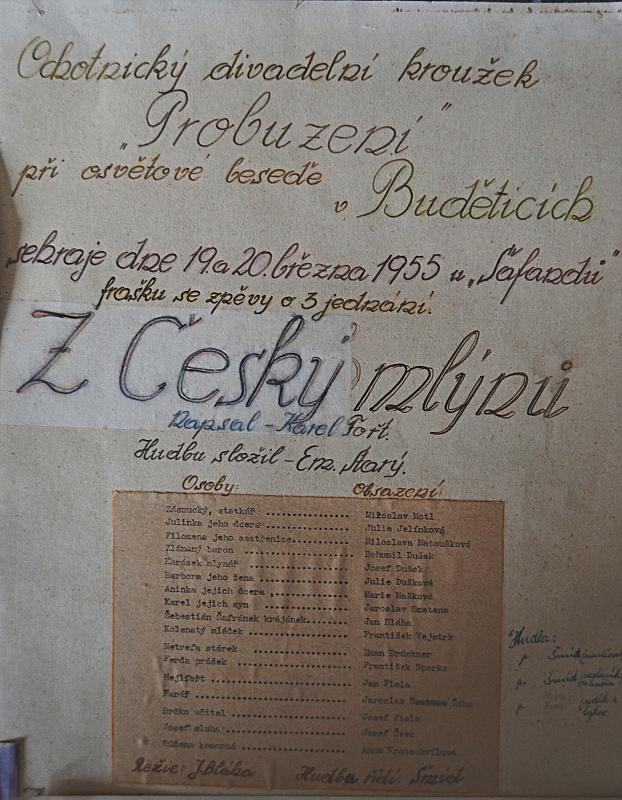 Ochotnický divadelní kroužek
„Probuzení"
při osvětové besedě
v Buděticích
sehraje dne 19. a 20. března 1955 u „Šafandů"
frašku se zpěvy o 3 jednání.
Z Český mlýnů
Napsal - Karel Fořt.
Hudbu složil - Em. Starý.
Osoby: Obsazení:
Zásmucký, statkář Miloslav Motl
Julinka jeho dcera Julie Jelínková
Filomena jeho sestřenice Miloslava Matoušková
Zlámaný baron Bohumil Dušek
Karásek mlynář Josef Dušek
Barbora jeho žena Julie Dušková
Aninka jejich dcera Marie Mašková
Karel jejich syn Jaroslav Smetana
Šebestián Šafránek krajánek Jan Bláha
Kolenatý mládek František Vejstrk
Netrefa stárek Eman Brückner
Ferda prášek František Sporka
Hejlfort Jan Fiala
Farář Jaroslav
Brčko učitel Josef Fiala
Josef sluha Josef Švec
Růžena komorná Anna Kratochvílová
Režie: J. Bláha Hudbu řídí: Šmíd
Hudba:
p. Šmíd
p. Šmíd
p.